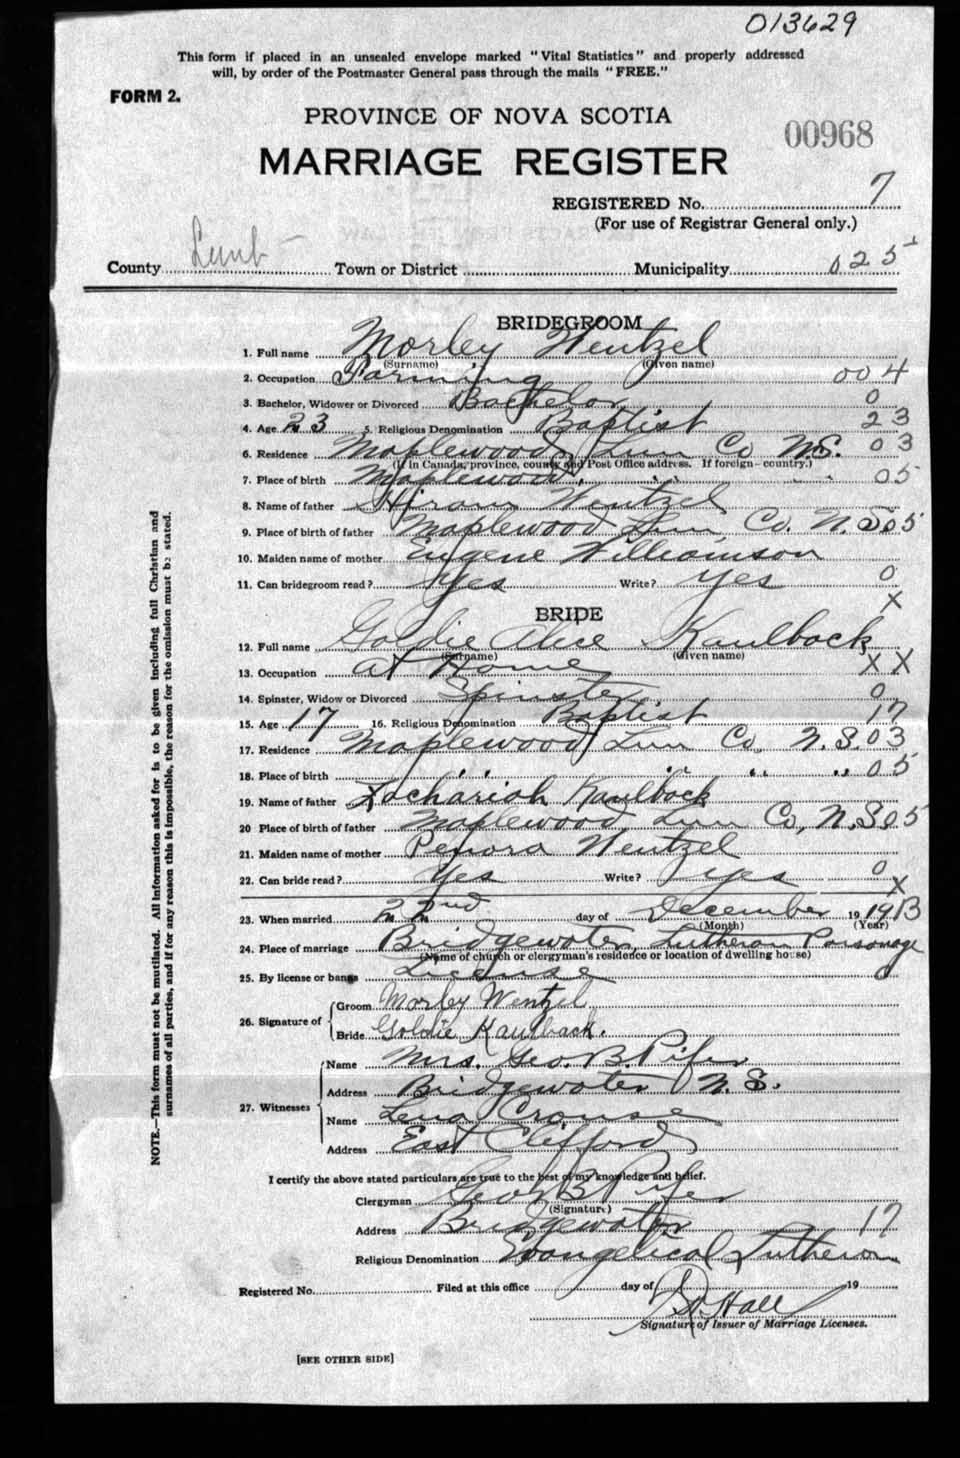 013629
This form if placed in an unsealed envelope marked "Vital Statistics" and properly addressed
will, by order of the Postmaster General pass through the mails "FREE."
FORM 2.
PROVINCE OF NOVA SCOTIA
00968
MARRIAGE REGISTER
REGISTERED No. 7
(For use of Registrar General only.)
County Lunb Town or District Municipality 025
BRIDEGROOM
1. Full name Morley Wentzel
(Surname) (Given name)
2. Occupation Farming 004
3. Bachelor, Widower or Divorced Bachelor 0
4. Age 23 5. Religious Denomination Baptist 23
6. Residence Maplewood, Lun Co N.S. 03
(If in Canada, province, county and Post Office address. If foreign—country.)
7. Place of birth Maplewood, " " " " 05
8. Name of father Hiram Wentzel
9. Place of birth of father Maplewood Lun Co. N.S. 05
10. Maiden name of mother Eugene Williamson
11. Can bridegroom read? Yes Write? yes 0
X
BRIDE
12. Full name Goldie Alice Kaulback
(Surname) (Given name)
13. Occupation at Home X X
14. Spinster, Widow or Divorced Spinster 0
15. Age 17 16. Religious Denomination Baptist 17
17. Residence Maplewood Lun Co. N.S. 03
18. Place of birth " " " " " 05
19. Name of father Zachariah Kaulback
20 Place of birth of father Maplewood Lun Co, N.S. 05
21. Maiden name of mother Wentzel
22. Can bride read? Yes Write? yes 0
X
23. When married 22nd day of December 19 19 13
(Month) (Year)
24. Place of marriage Bridgewater, Lutheran Parsonage
(Name of church or clergyman's residence or location of dwelling house)
25. By license or banns License
26. Signature of
Groom Morley Wentzel
Bride Goldie Kaulback.
27. Witnesses
Name Mrs. Geo. B. Pifer
Address Bridgewater N.S.
Name Lena Crouse
Address East Clifford
I certify the above stated particulars are true to the best of my knowledge and belief.
Clergyman Geo. B. Pifer
(Signature)
Address Bridgewater 17
Religious Denomination Evangelical Lutheran
Registered No. Filed at this office day of 19
Hall
Signature of Issuer of Marriage Licenses.
[SEE OTHER SIDE]
NOTE.—This form must not be mutilated. All information asked for is to be given including full Christian and
surnames of all parties, and if for any reason this is impossible, the reason for the omission must be stated.